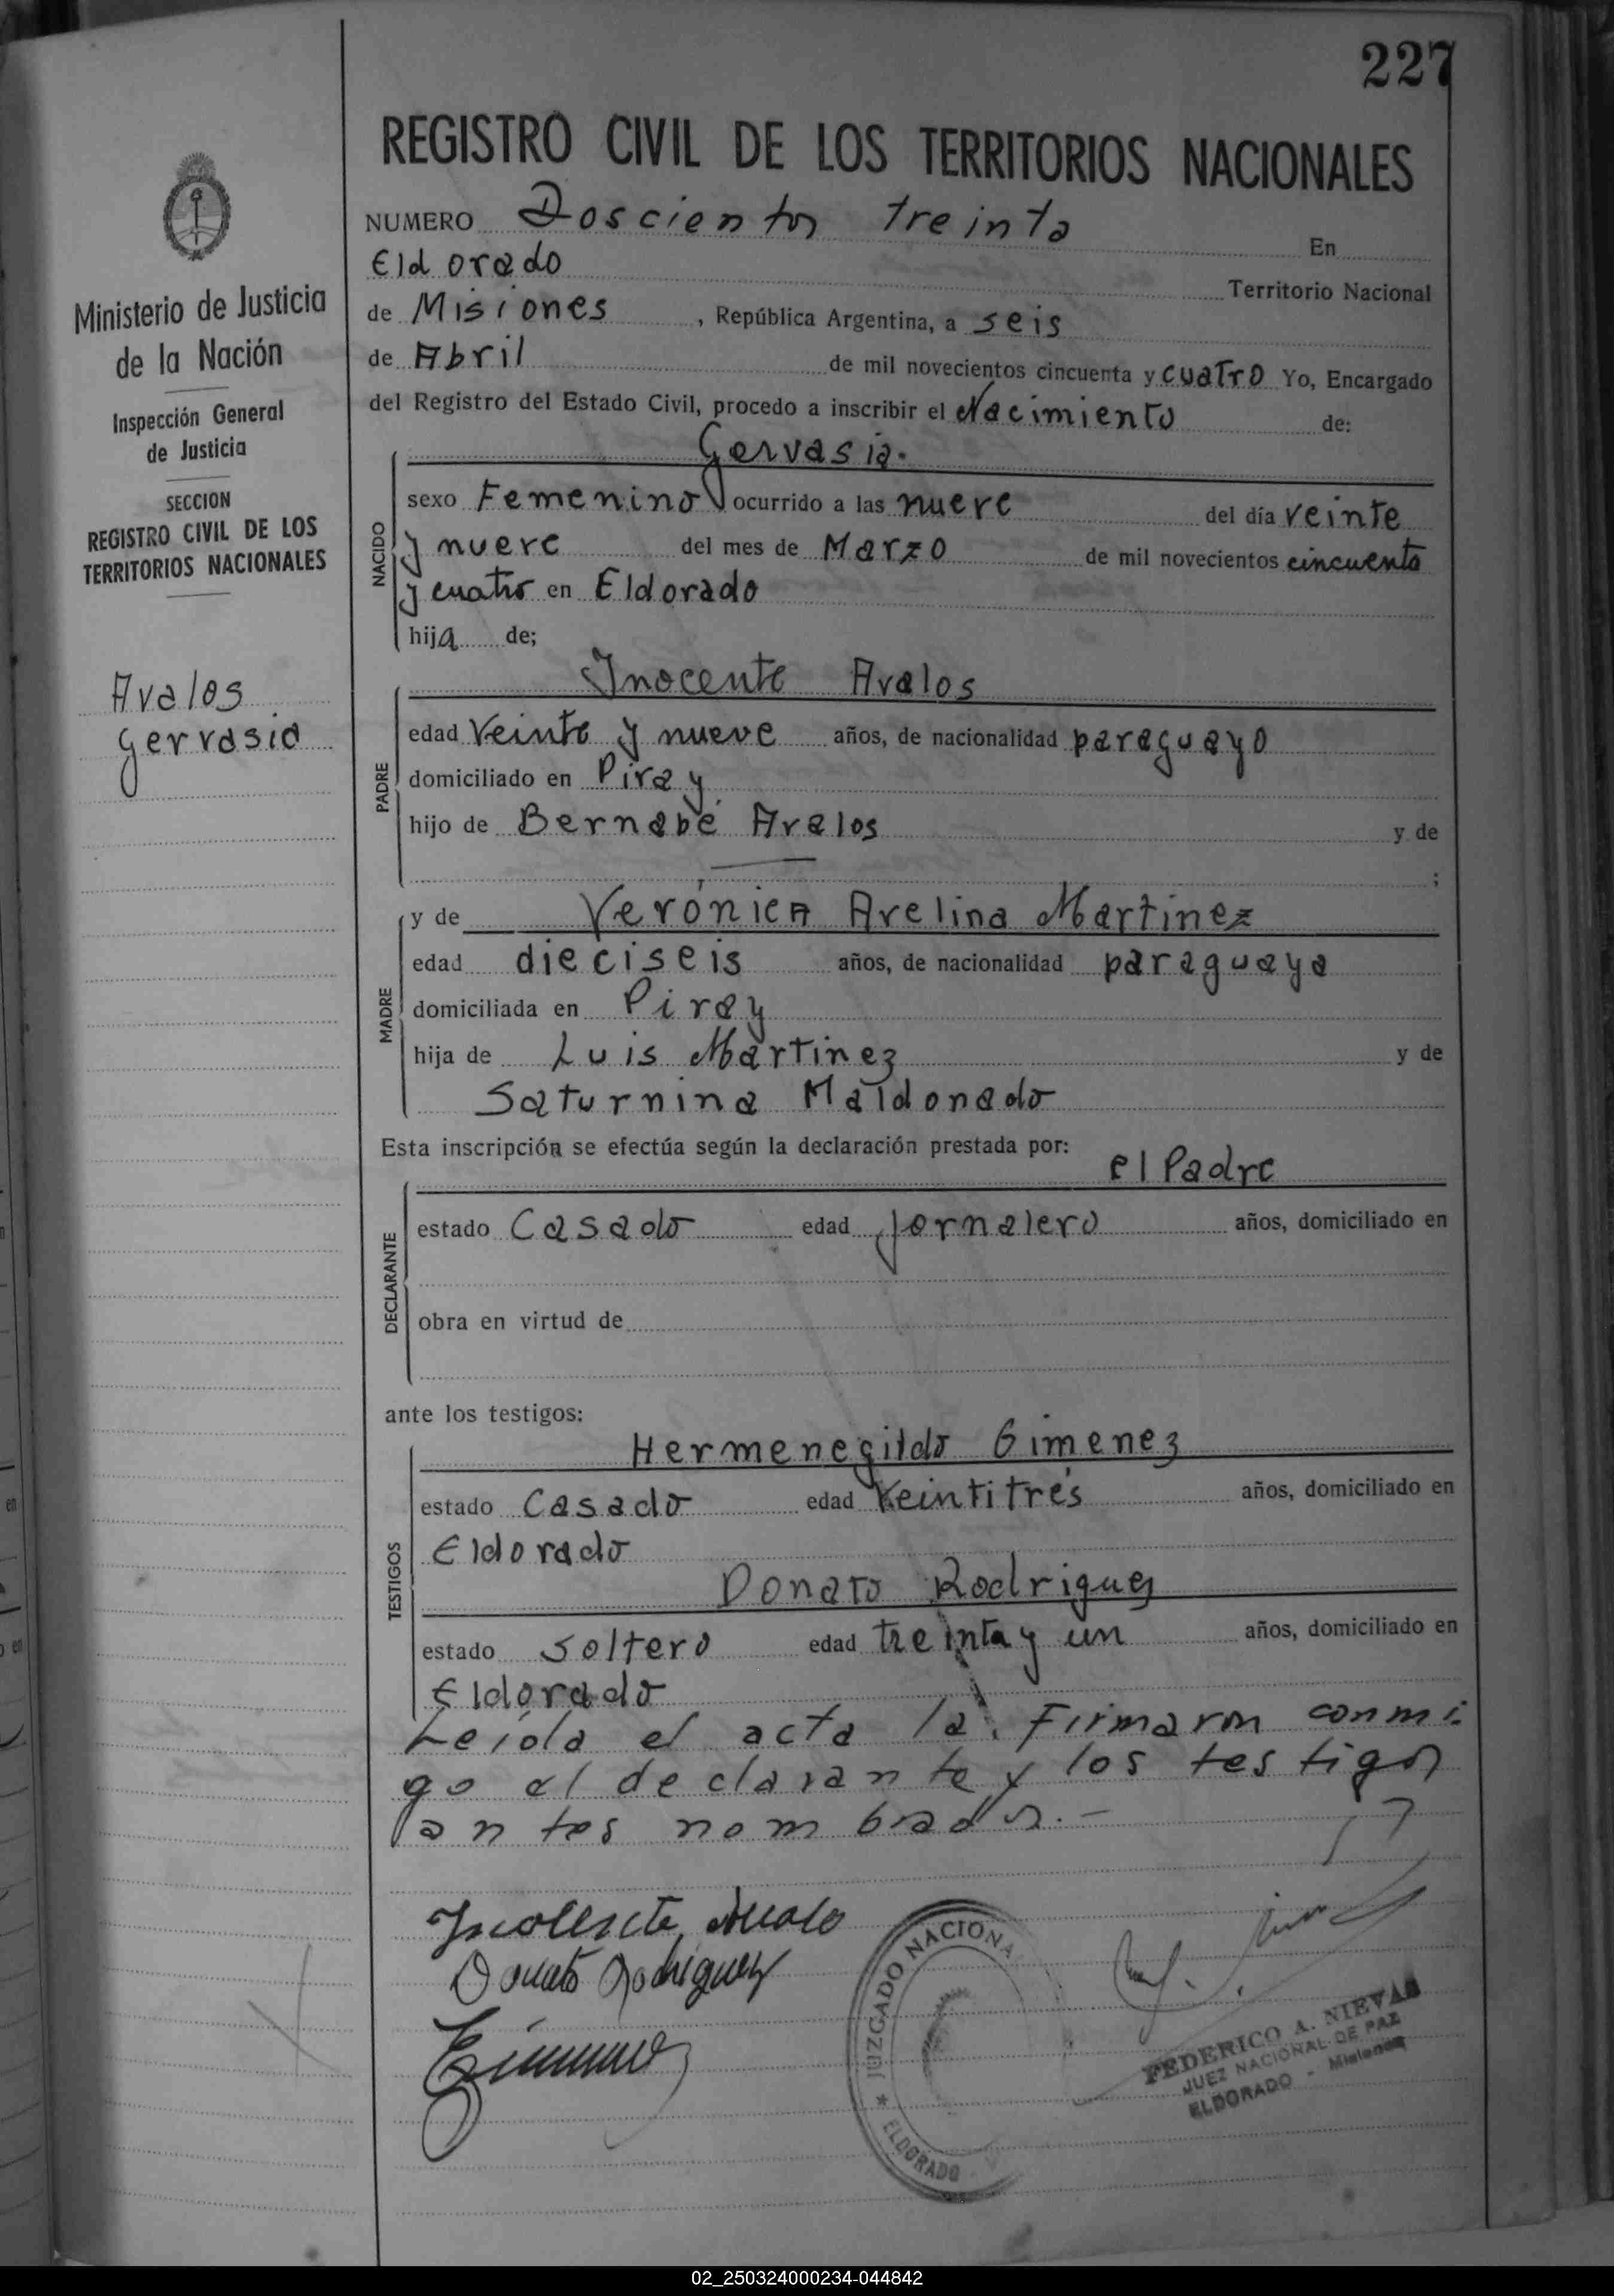 227
REGISTRO CIVIL DE LOS TERRITORIOS NACIONALES
Ministerio de Justicia
de la Nación
Inspección General
de Justicia
SECCION
REGISTRO CIVIL DE LOS
TERRITORIOS NACIONALES
Avalos
Gervasia
NUMERO Doscientos treinta En
Eldorado Territorio Nacional
de Misiones, República Argentina, a seis
de Abril de mil novecientos cincuenta y cuatro Yo, Encargado
del Registro del Estado Civil, procedo a inscribir el Nacimiento de:
NACIDO
Gervasia.
sexo Femenino ocurrido a las nueve del día veinte
y nueve del mes de Marzo de mil novecientos cincuenta
y cuatro en Eldorado
hija de;
PADRE
Inocente Avalos
edad Veinte y nueve años, de nacionalidad paraguayo
domiciliado en Piray
hijo de Bernabé Avalos y de
;
MADRE
y de Verónica Avelina Martinez
edad dieciseis años, de nacionalidad paraguaya
domiciliada en Piray
hija de Luis Martinez y de
Saturnina Maldonado
Esta inscripción se efectúa según la declaración prestada por:
DECLARANTE
el Padre
estado Casado edad Jornalero años, domiciliado en
obra en virtud de
ante los testigos:
TESTIGOS
Hermenegildo Gimenez
estado Casado edad Veintitrés años, domiciliado en
Eldorado
Donato Rodriguez
estado soltero edad treinta y un años, domiciliado en
Eldorado
Leída el acta la firmaron conmi-
go el declarante y los testigos
antes nombrados.-
Inocente Avalo
Donato Rodriguez
JUZGADO NACIONAL
* ELDORADO
FEDERICO A. NIEVAS
JUEZ NACIONAL DE PAZ
ELDORADO - Misiones
02_250324000234-044842